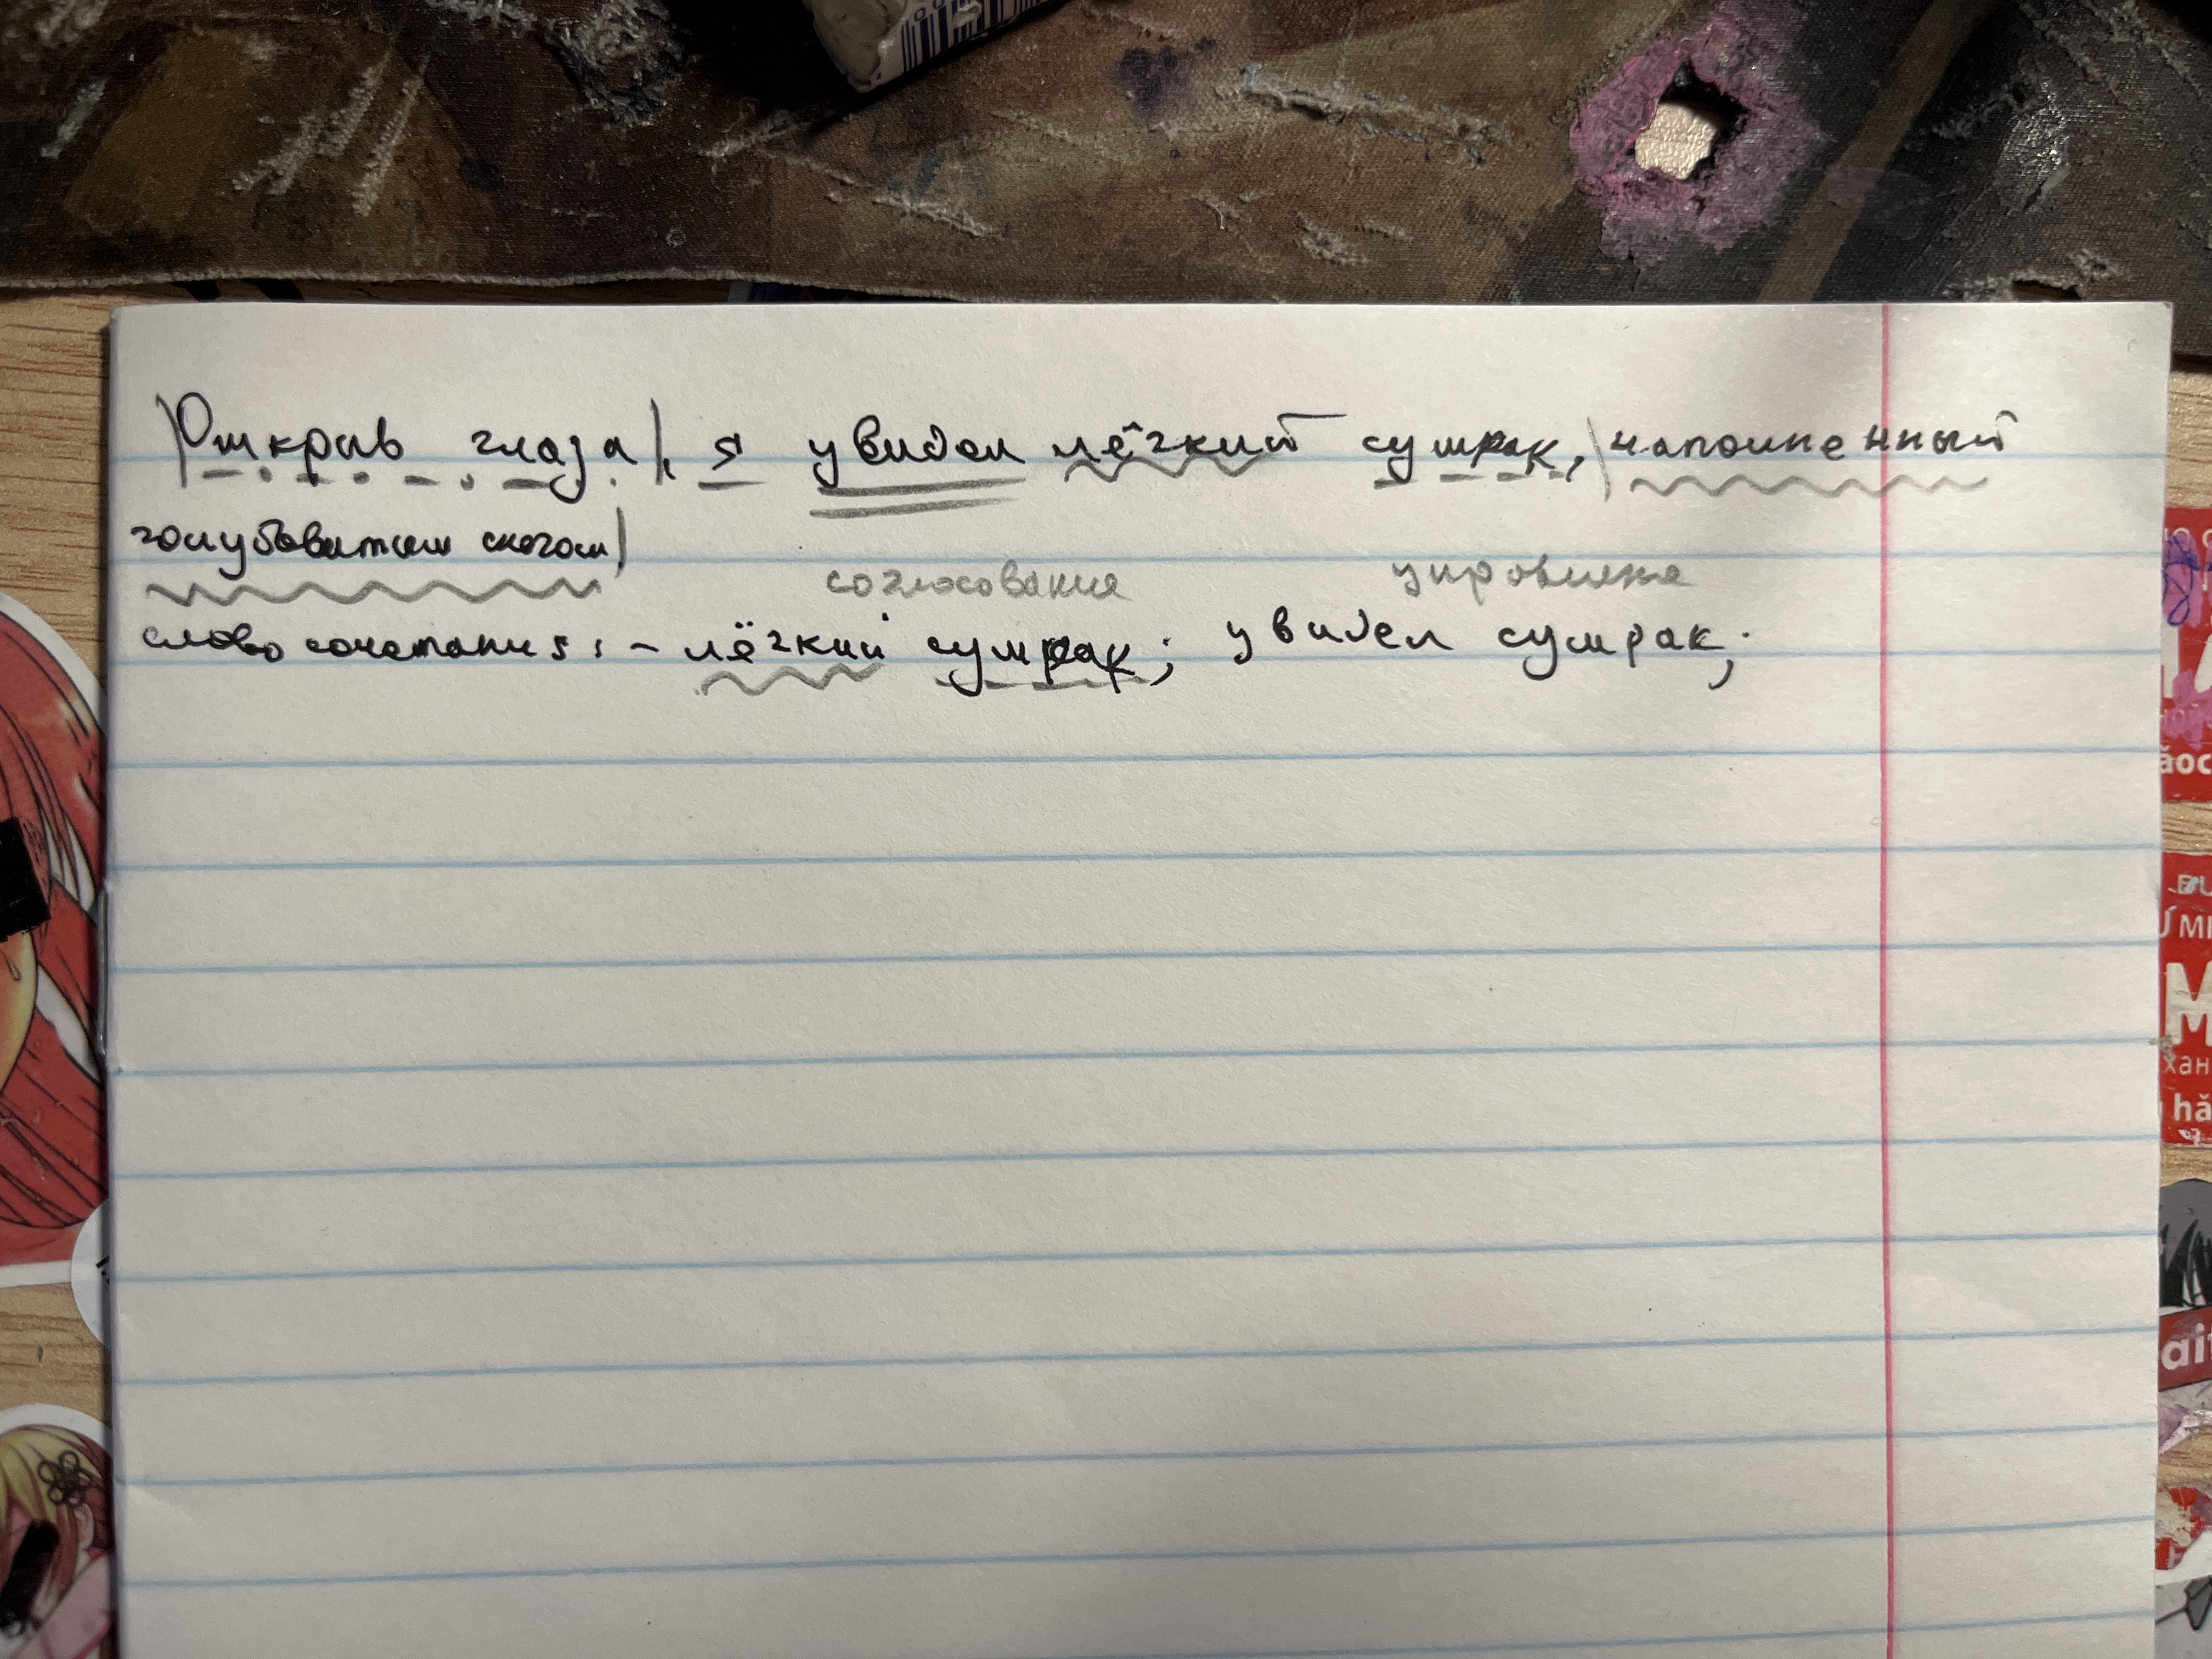 Открыв глаза, я увидел лёгкий сумрак, наполненный
голубоватым снегом
согласование управление
словосочетания: - лёгкий сумрак; увидел сумрак;